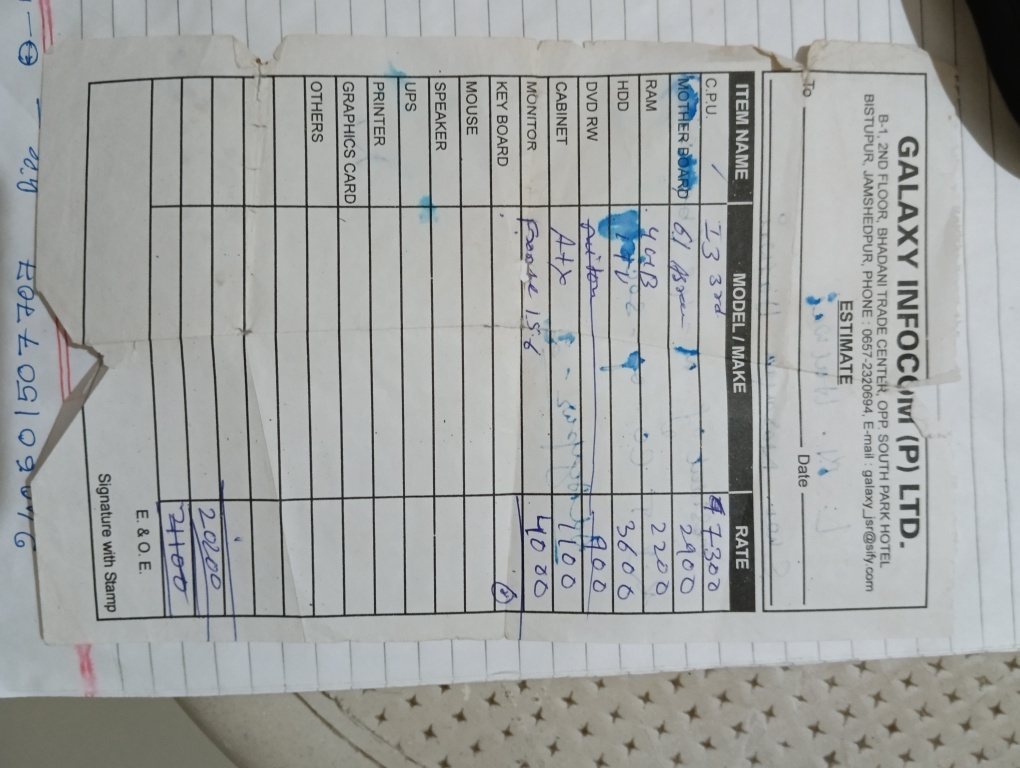 GALAXY INFOCOM (P) LTD.
B-1, 2ND FLOOR, BHADANI TRADE CENTER, OPP. SOUTH PARK HOTEL
BISTUPUR, JAMSHEDPUR, PHONE : 0657-2320694, E-mail : galaxy_jsr@sify.com
ESTIMATE
To Date
ITEM NAME MODEL / MAKE RATE
C.P.U. I3 3rd 7300
MOTHER BOARD 61 2900
RAM 4GB 2200
HDD 3600
DVD RW 900
CABINET Atx 1100
MONITOR 15.6 4000
KEY BOARD
MOUSE
SPEAKER
UPS
PRINTER
GRAPHICS CARD
OTHERS
20200
21100
E. & O. E.
Signature with Stamp